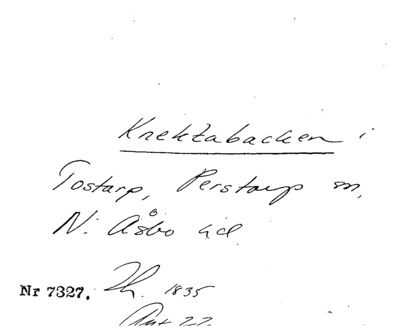 Knektabacken i
Tostarp, Perstorp sn,
N. Åsbo hd.
Nr 7327. 1835
22